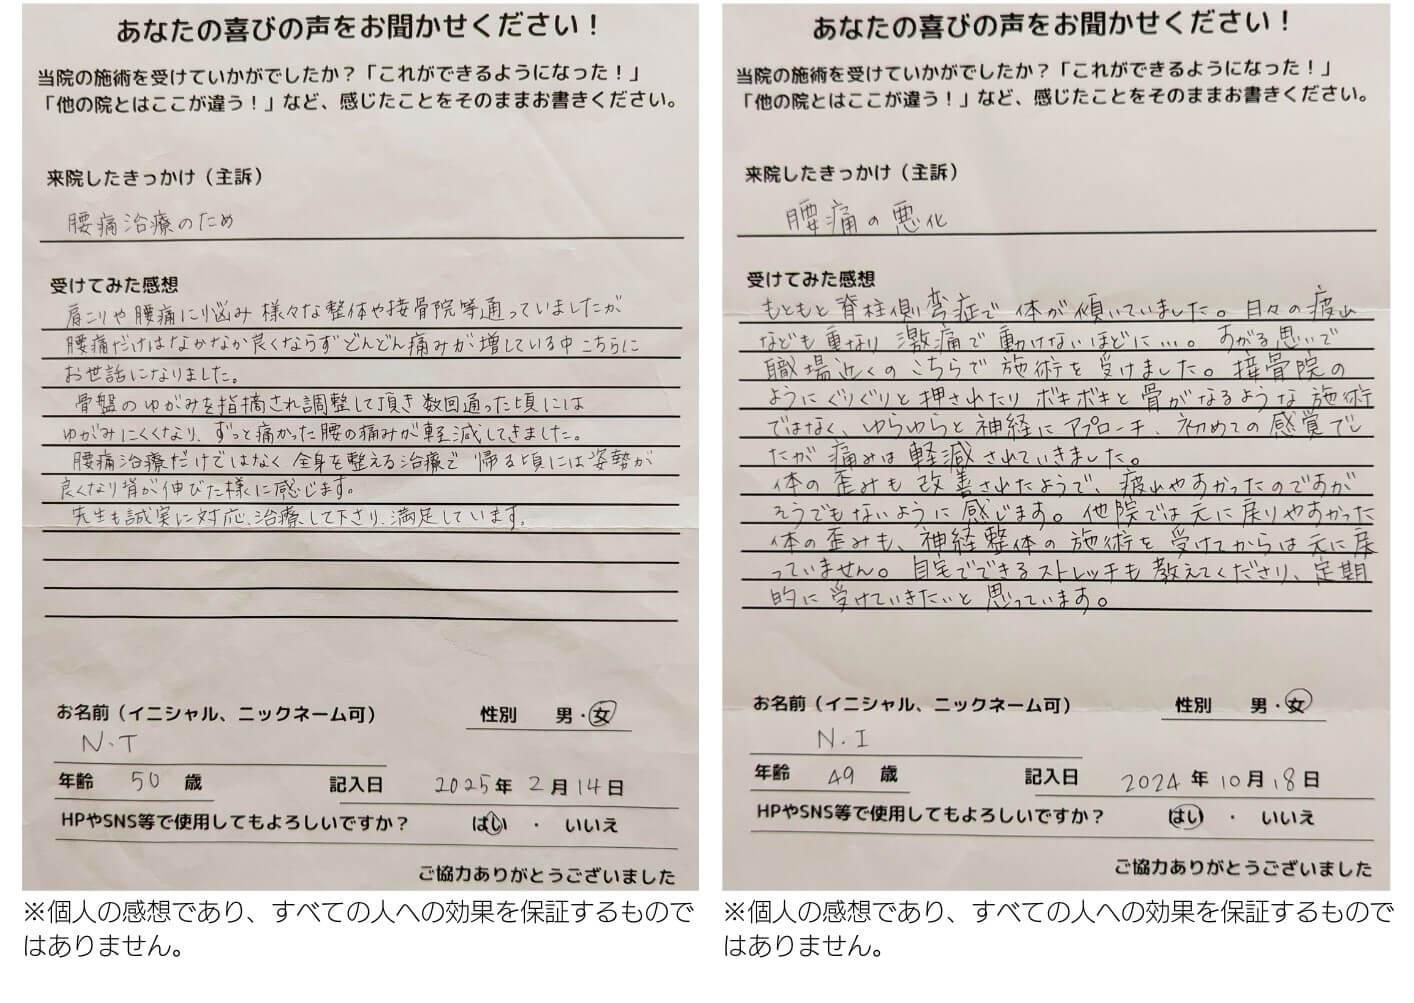 あなたの喜びの声をお聞かせください！
当院の施術を受けていかがでしたか？「これができるようになった！」
「他の院とはここが違う！」など、感じたことをそのままお書きください。
来院したきっかけ（主訴）
腰痛治療のため
受けてみた感想
肩こりや腰痛に悩み様々な整体や接骨院等通っていましたが
腰痛だけはなかなか良くならずどんどん痛みが増している中こちらに
お世話になりました。
骨盤のゆがみを指摘され調整して頂き数回通った頃には
ゆがみにくくなり、ずっと痛かった腰の痛みが軽減してきました。
腰痛治療だけではなく全身を整える治療で帰る頃には姿勢が
良くなり背が伸びた様に感じます。
先生も誠実に対応、治療して下さり、満足しています。
お名前（イニシャル、ニックネーム可）
性別 男・女
N.T
年齢 50 歳
記入日 2025年 2月14日
HPやSNS等で使用してもよろしいですか？ はい ・ いいえ
ご協力ありがとうございました
※個人の感想であり、すべての人への効果を保証するもので
はありません。
あなたの喜びの声をお聞かせください！
当院の施術を受けていかがでしたか？「これができるようになった！」
「他の院とはここが違う！」など、感じたことをそのままお書きください。
来院したきっかけ（主訴）
腰痛の悪化
受けてみた感想
もともと脊柱側弯症で体が傾いていました。日々の疲れ
なども重なり激痛で動けないほどに…。すがる思いで
職場近くのこちらで施術を受けました。接骨院の
ようにぐりぐりと押されたりボキボキと骨がなるような施術
ではなく、ゆらゆらと神経にアプローチ、初めての感覚でし
たが痛みは軽減されていきました。
体の歪みも改善されたようで、疲れやすかったのですが
そうでもないように感じます。他院では元に戻りやすかった
体の歪みも、神経整体の施術を受けてからは元に戻
っていません。自宅でできるストレッチも教えてくださり、定期
的に受けていきたいと思っています。
お名前（イニシャル、ニックネーム可）
性別 男・女
N.I
年齢 49 歳
記入日 2024年10月18日
HPやSNS等で使用してもよろしいですか？ はい ・ いいえ
ご協力ありがとうございました
※個人の感想であり、すべての人への効果を保証するもので
はありません。